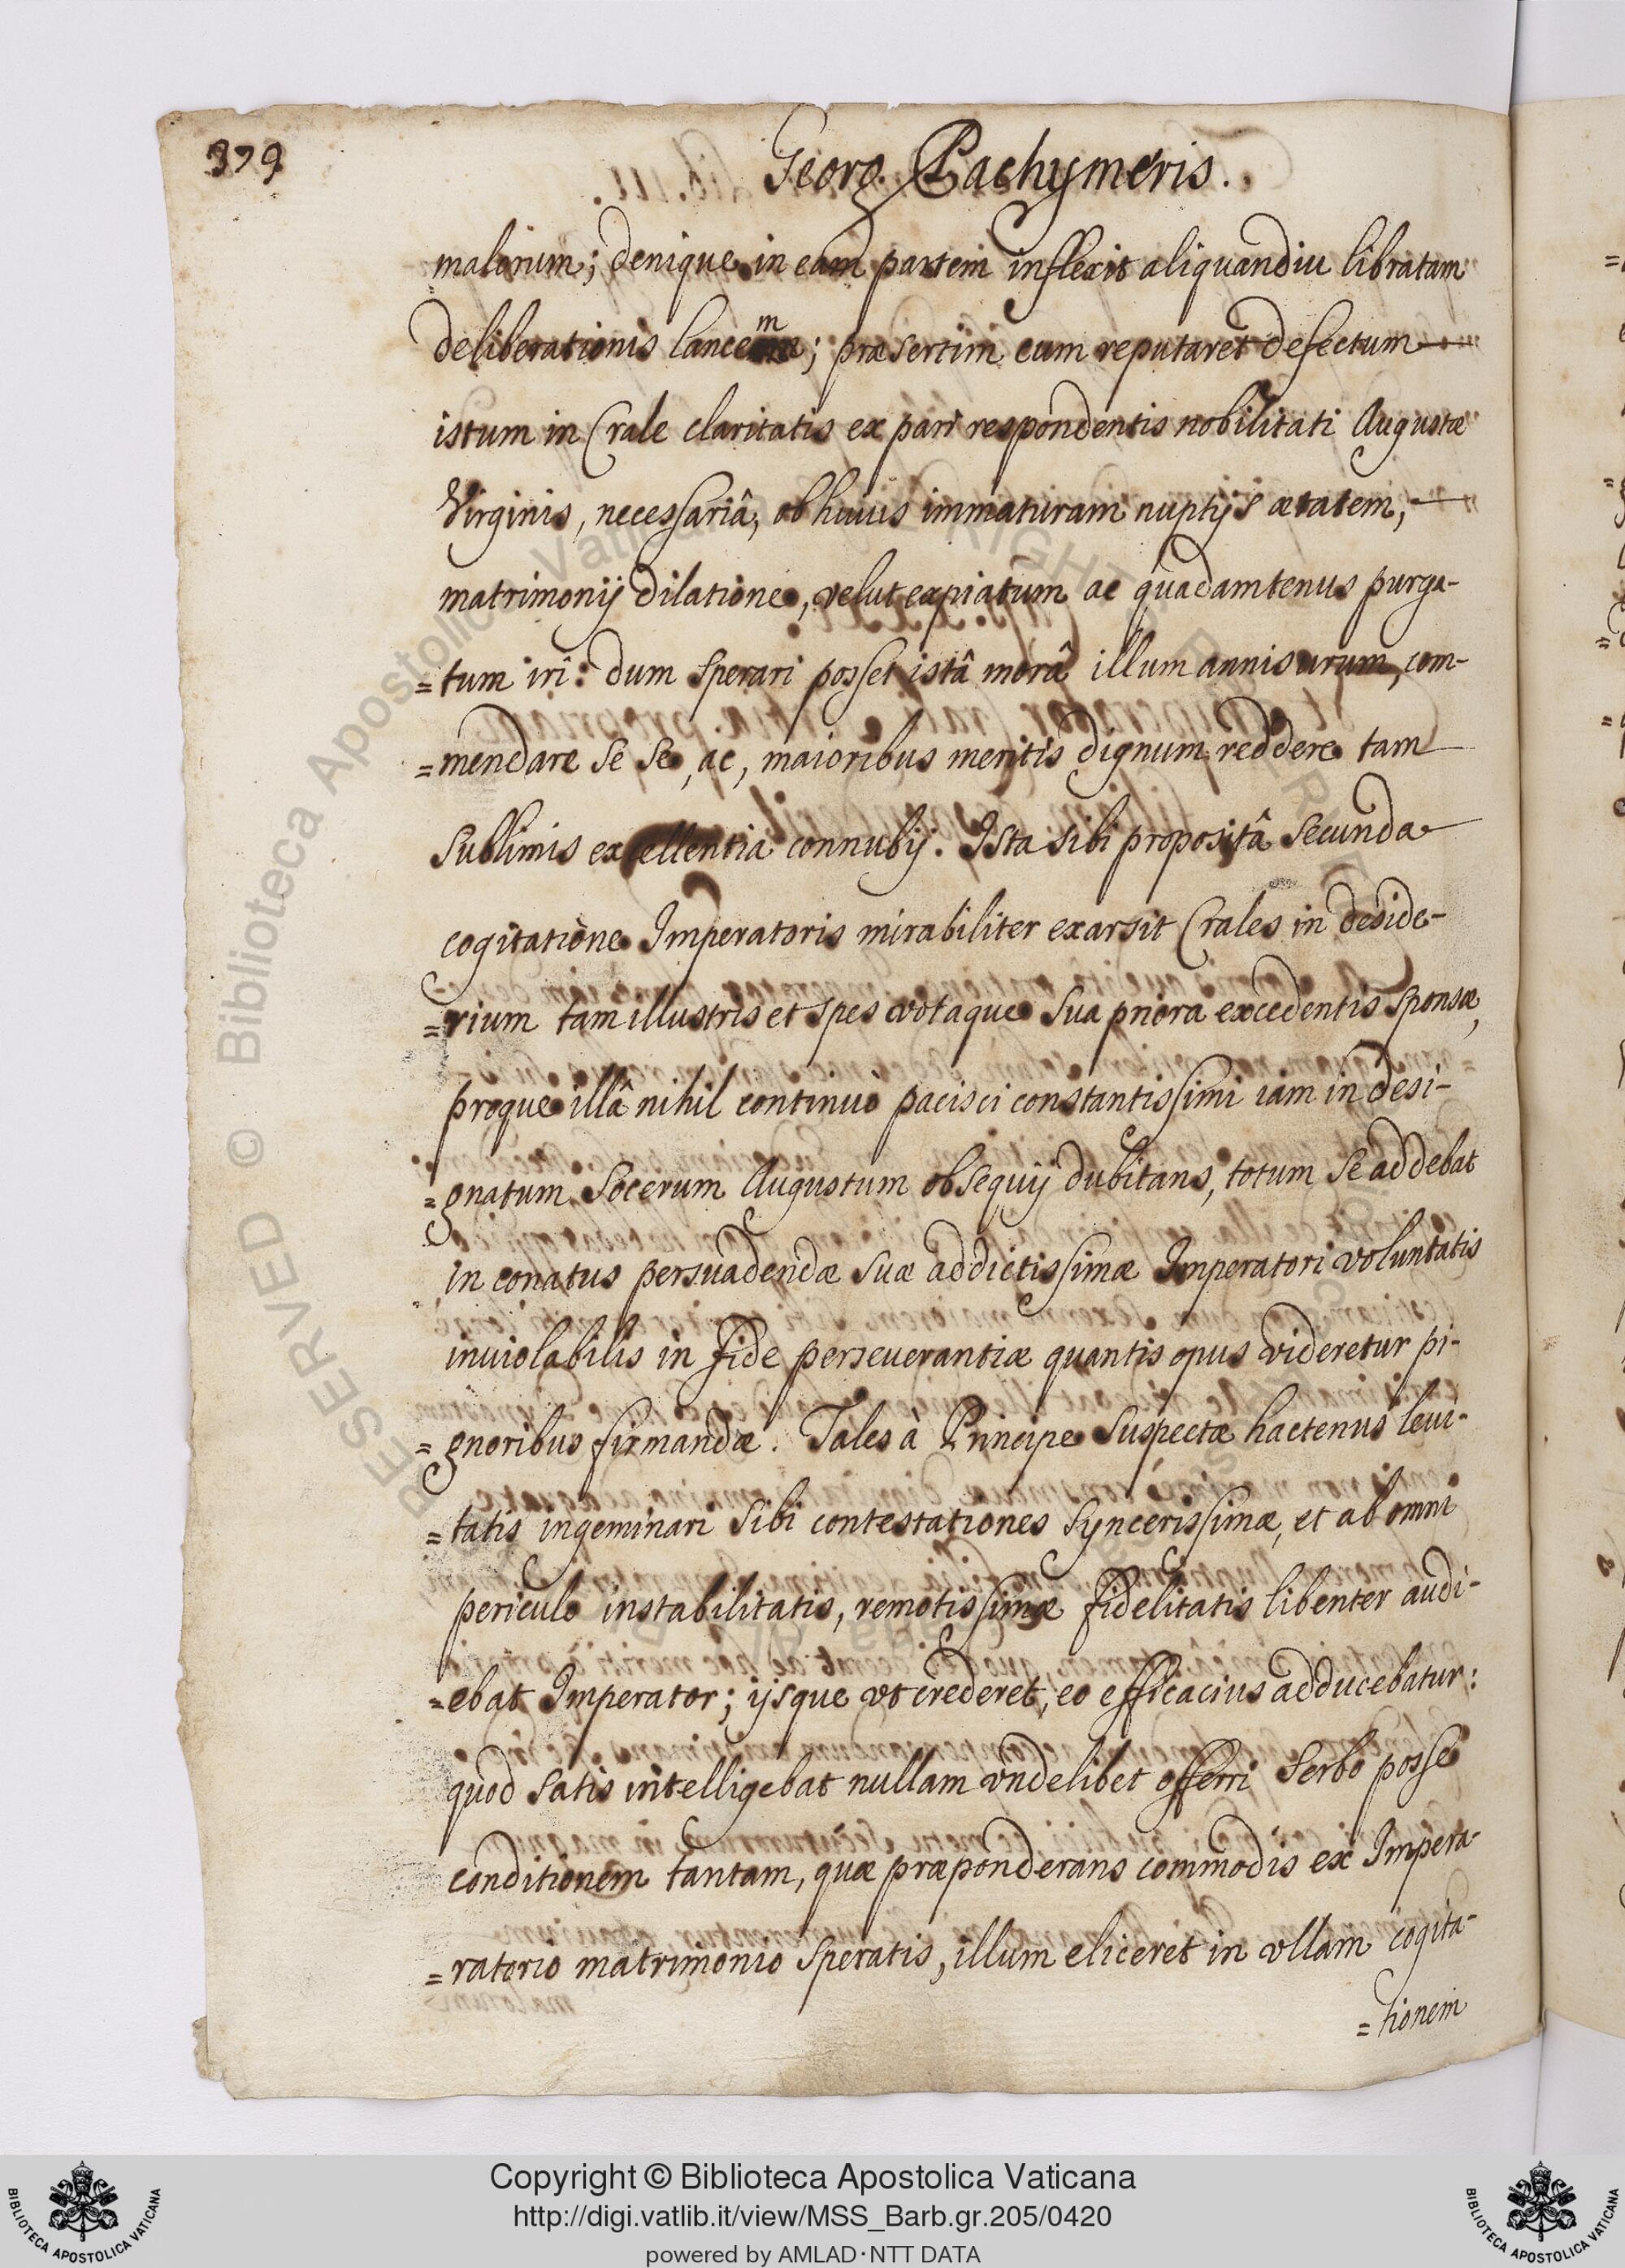 379
Georg. Pachymeris.
malorum; denique in eam partem inflexit aliquandiu libratam
deliberationis lancem; præsertim cum reputaret defectum
istum in Crale claritatis ex pari respondentis nobilitati Augustæ
Virginis, necessariâ, ob huius immaturam nuptijs ætatem,
matrimonij dilatione, velut expiatum ac quadamtenus purga-
=tum iri: dum sperari posset istâ morâ illum annisurum, com-
=mendare se se, ac, maioribus meritis dignum reddere tam
sublimis excellentia connubij. Ista sibi propositâ secunda
cogitatione Imperatoris mirabiliter exarsit Crales in deside-
=rium tam illustris et spes votaque sua priora excedentis sponsæ,
proque illâ nihil continuò pacisci constantissimi iam in desi-
=gnatum socerum Augustum obsequij dubitans, totum se addebat
in conatus persuadendæ suæ addictissimæ Imperatori voluntatis
inuiolabilis in fide perseuerantiæ quantis opus videretur pi-
=gnoribus firmandæ. Tales à Principe suspectæ hactenus leui-
=tatis ingeminari sibi contestationes syncerissimæ, et ab omni
periculo instabilitatis, remotissimæ fidelitatis libenter audi-
=ebat Imperator; ijsque vt crederet, eo efficacius adducebatur:
quod satis intelligebat nullam vndelibet offerri Serbo posse
conditionem tantam, quæ præponderans commodis ex Impera-
=ratorio matrimonio speratis, illum eliceret in vllam cogita-
=tionem
© Biblioteca Apostolica Vaticana
Copyright © Biblioteca Apostolica Vaticana
http://digi.vatlib.it/view/MSS_Barb.gr.205/0420
powered by AMLAD·NTT DATA
BIBLIOTECA APOSTOLICA VATICANA
BIBLIOTECA APOSTOLICA VATICANA